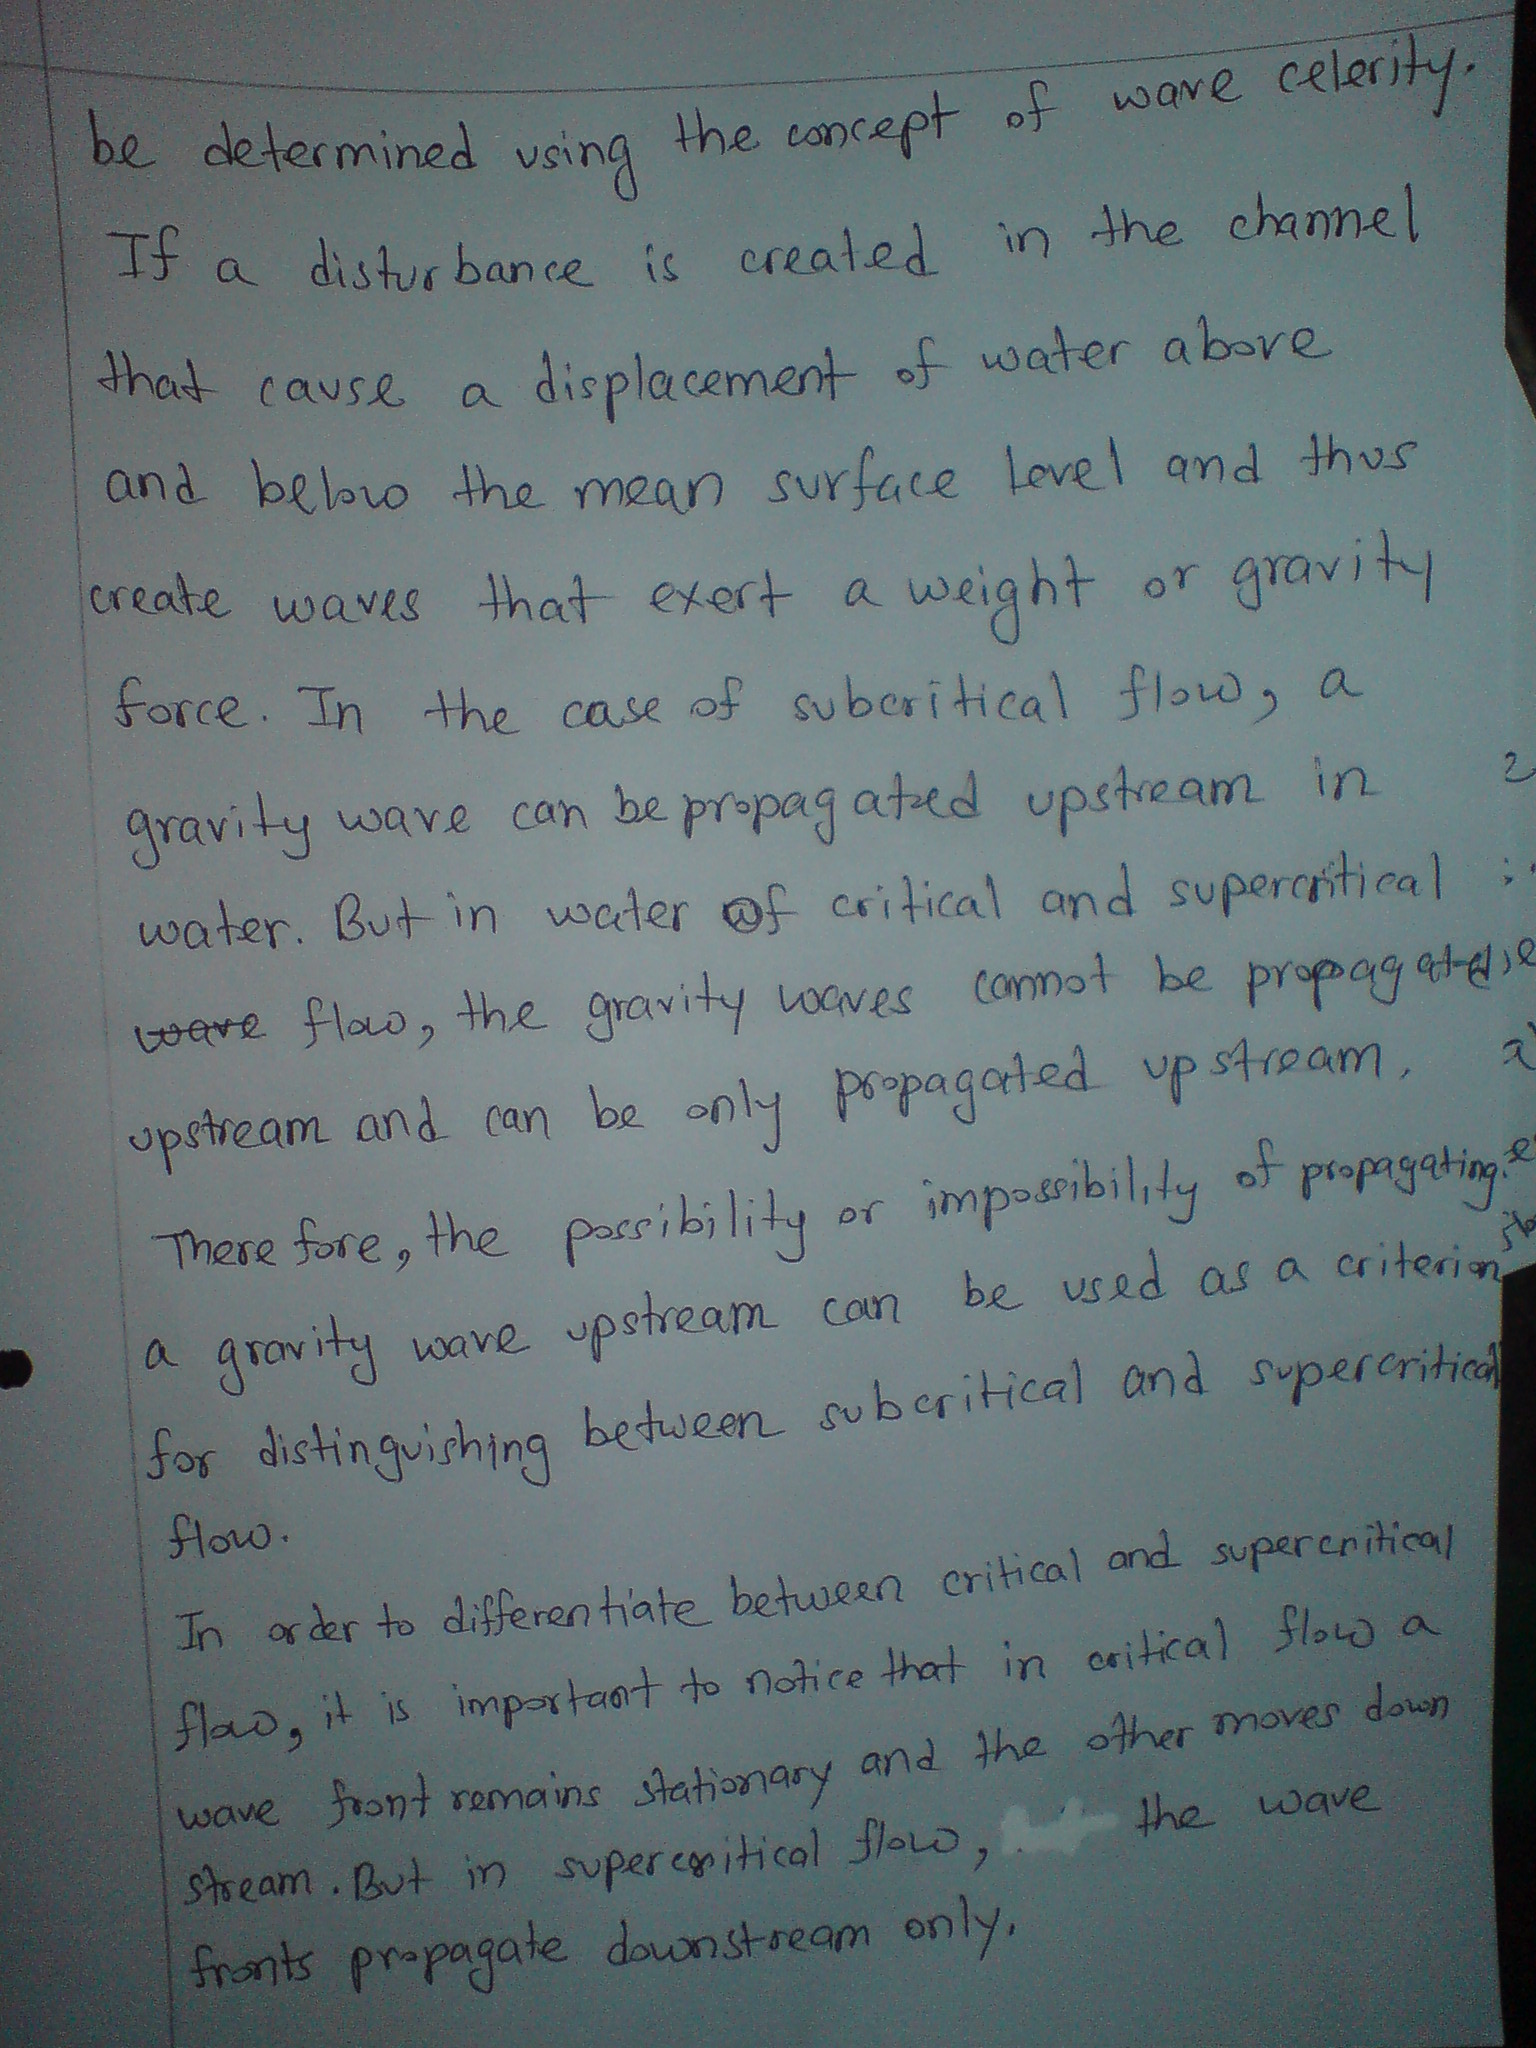 be determined using the concept of wave celerity.
If a disturbance is created in the channel
that cause a displacement of water above
and below the mean surface level and thus
create waves that exert a weight or gravity
force. In the case of subcritical flow, a
gravity wave can be propagated upstream in
water. But in water of critical and supercritical
wave flow, the gravity waves cannot be propagated
upstream and can be only propagated upstream.
Therefore, the possibility or impossibility of propagating
a gravity wave upstream can be used as a criterion
for distinguishing between subcritical and supercritical
flow.
In order to differentiate between critical and supercritical
flow, it is important to notice that in critical flow a
wave front remains stationary and the other moves down
stream. But in supercritical flow, the wave
fronts propagate downstream only.